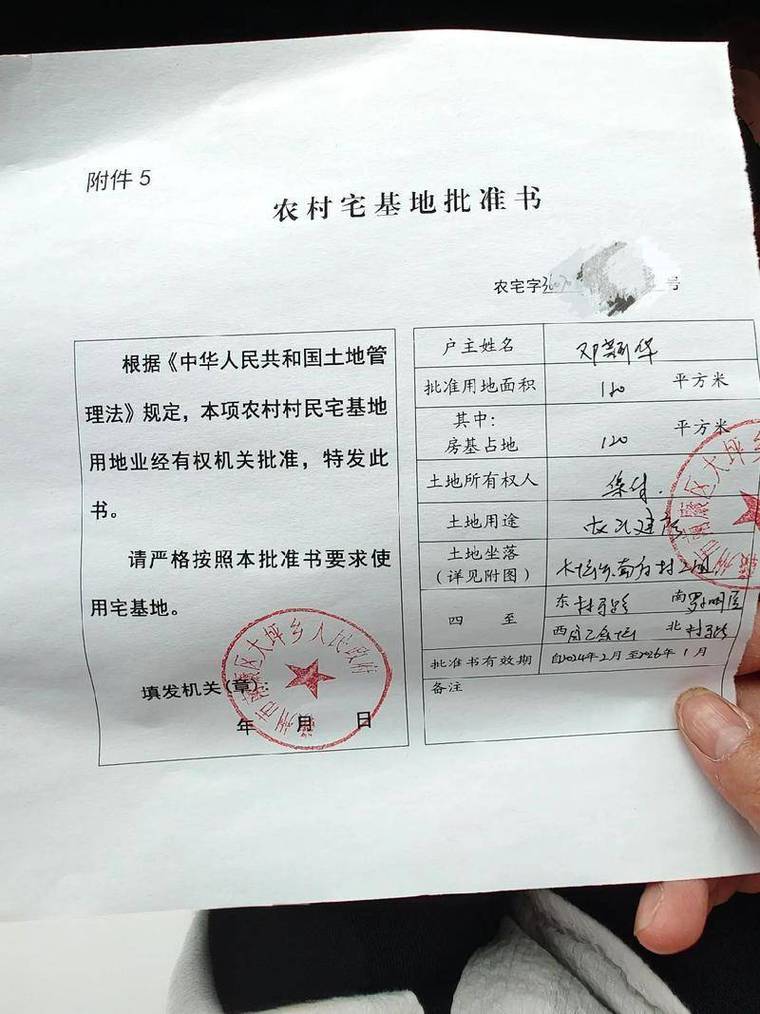 附件 5
农村宅基地批准书
农宅字 号
根据《中华人民共和国土地管
理法》规定，本项农村村民宅基地
用地业经有权机关批准，特发此
书。
请严格按照本批准书要求使
用宅基地。
填发机关(章)：
年 月 日
大坪乡人民政府
户主姓名 邓新华
批准用地面积 120 平方米
其中：
房基占地 120 平方米
土地所有权人 集体
土地用途
土地坐落
（详见附图）
四 至 东 南
西 北
批准书有效期 自2024年2月至2026年1月
备注
区大坪乡